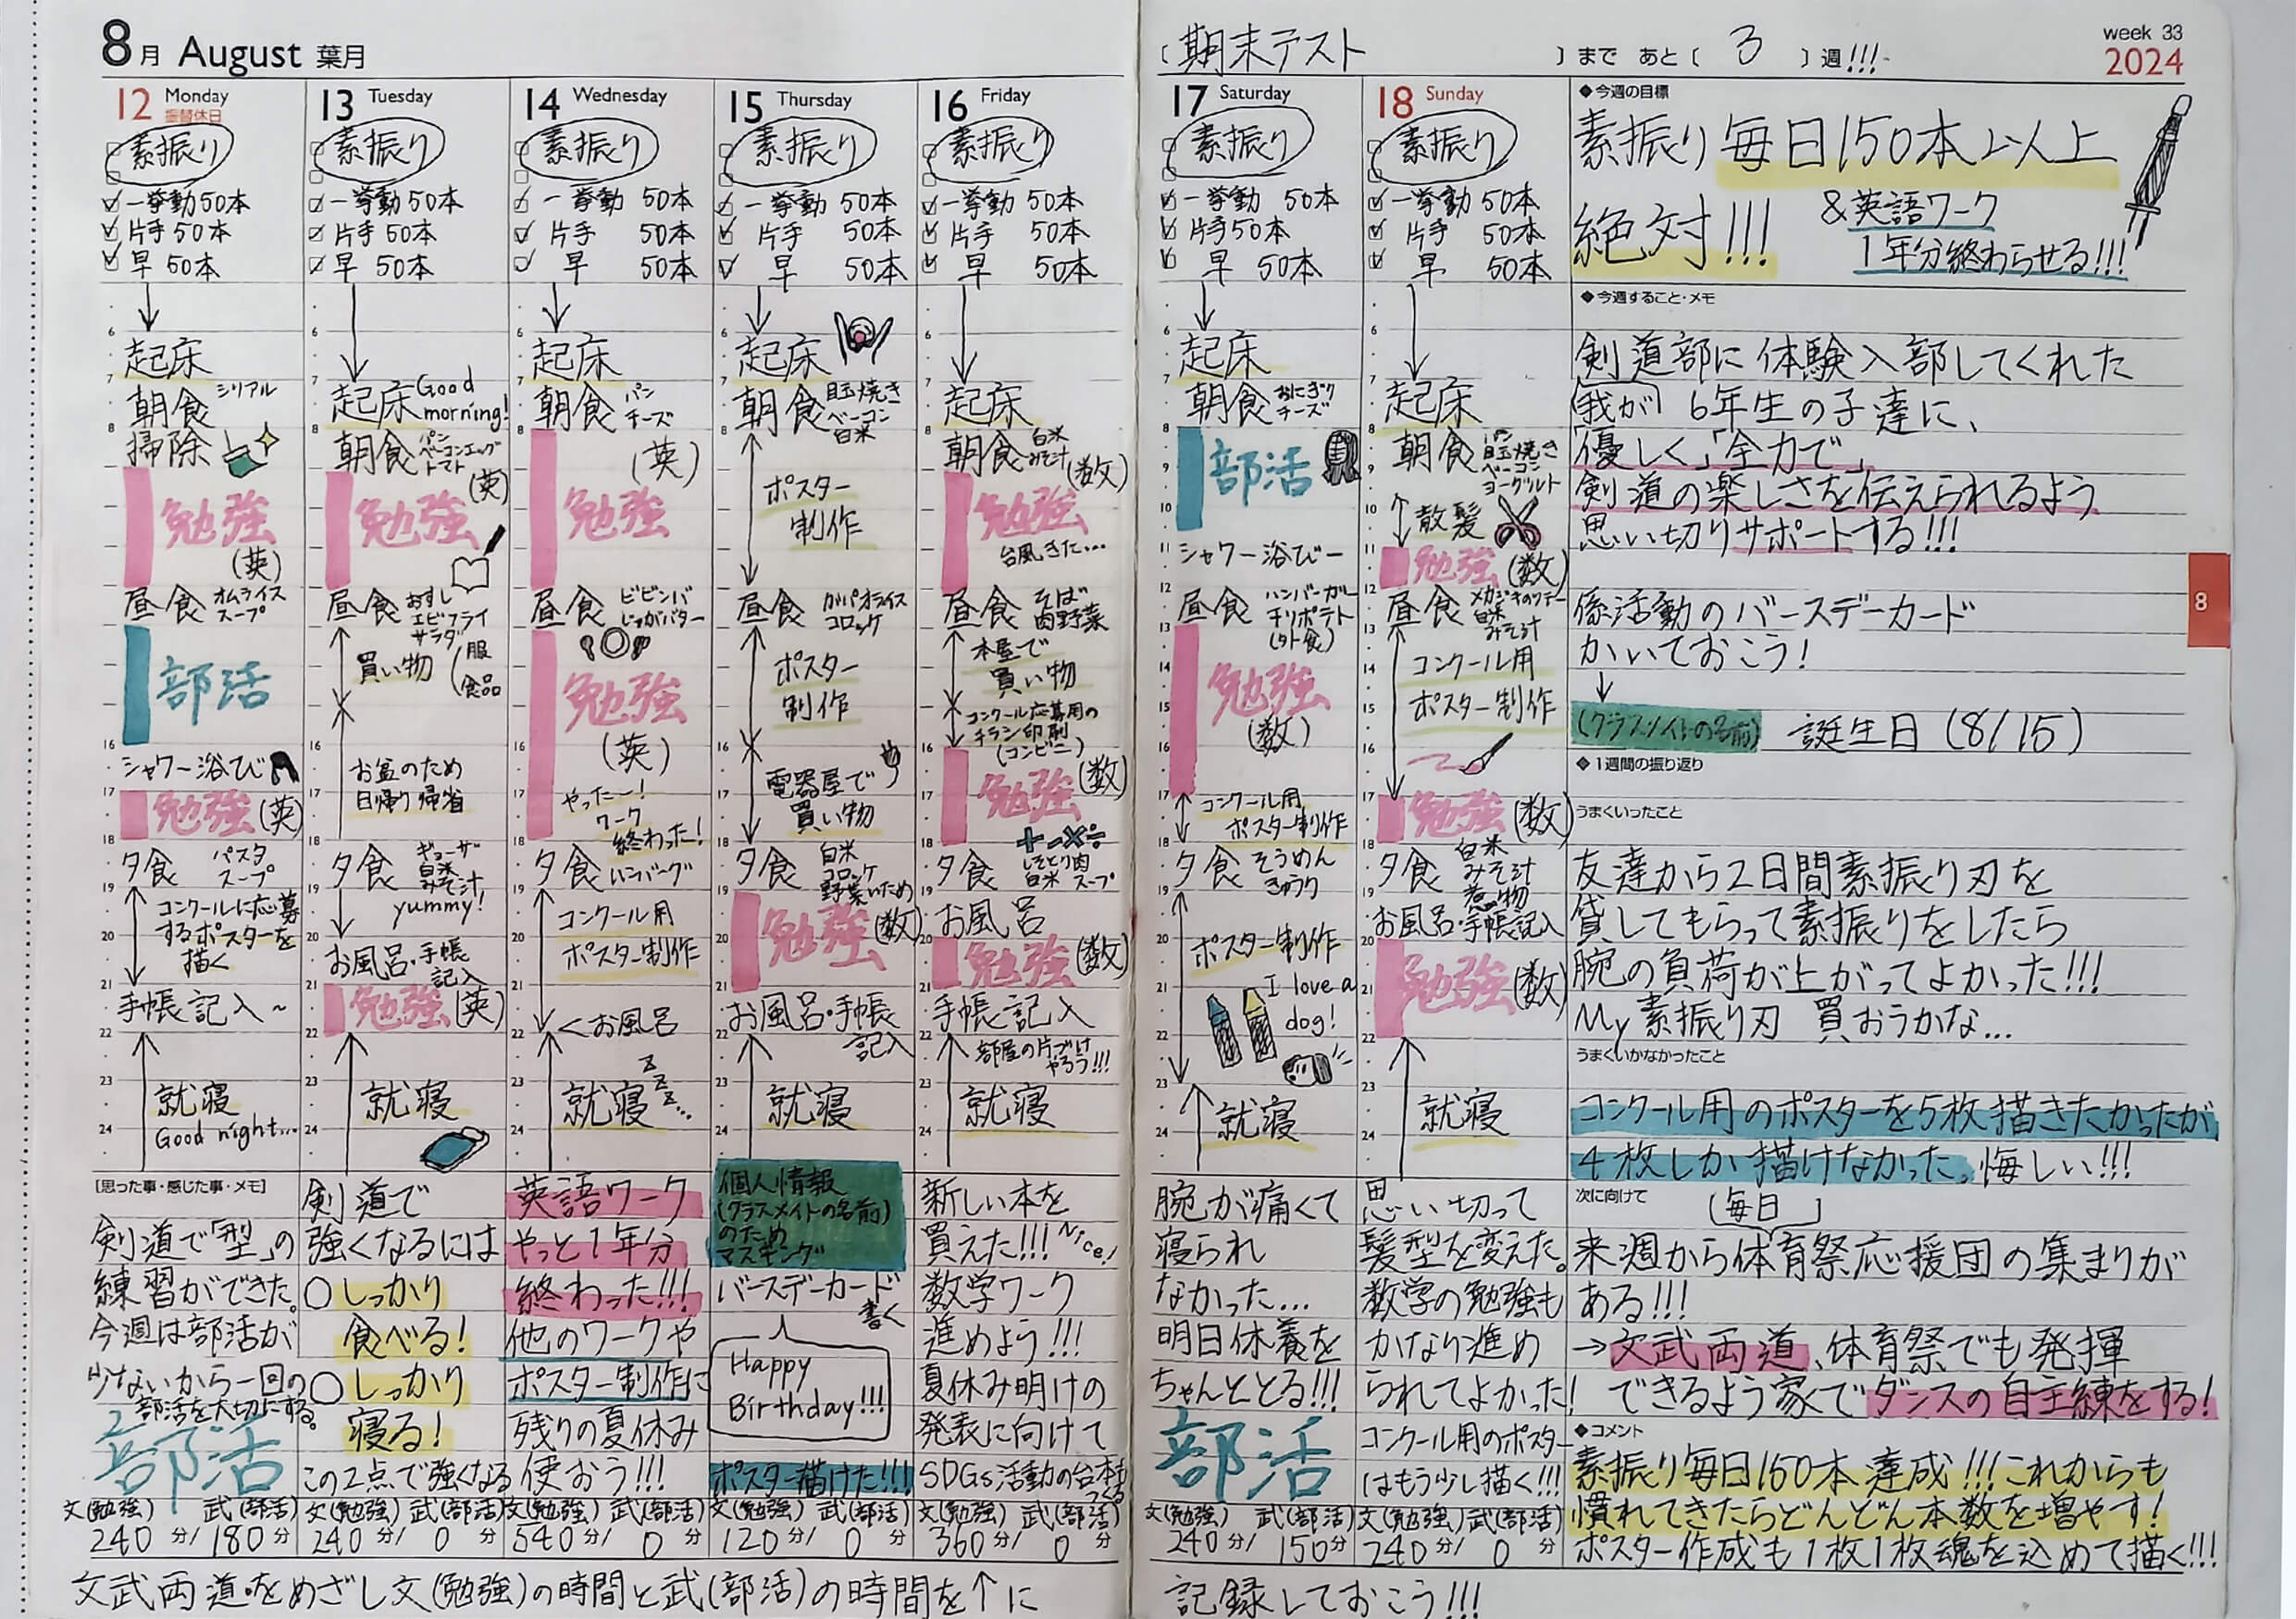 8月 August 葉月
12 Monday
振替休日
素振り
一挙動50本
片手50本
早 50本
6
起床
7
朝食 シリアル
8
掃除
9
10
勉強
11
(英)
12
昼食 オムライス
スープ
13
14
部活
15
16
シャワー浴び
17
勉強(英)
18
夕食 パスタ
スープ
19
コンクールに応募
するポスターを
20
描く
21
手帳記入~
22
23
就寝
Good night...
24
[思った事・感じた事・メモ]
剣道で「型」の
練習ができた。
今週は部活が
少ないから一回の
部活を大切にする。
部活
文(勉強) 武(部活)
240分/180分
13 Tuesday
素振り
一挙動50本
片手50本
早 50本
6
7
起床 Good
morning!
8
朝食 パン
ベーコンエッグ
トマト
(英)
勉強
昼食 おすし
エビフライ
サラダ
買い物(服
食品
お盆のため
日帰り帰省
夕食 ギョーザ
白米
みそ汁
yummy!
お風呂・手帳
記入
勉強(英)
就寝
剣道で
強くなるには
○しっかり
食べる!
○しっかり
寝る!
この2点で強くなる
文(勉強) 武(部活)
240分/0分
14 Wednesday
素振り
一挙動 50本
片手 50本
早 50本
起床
朝食 パン
チーズ
(英)
勉強
昼食 ビビンバ
じゃがバター
勉強
(英)
やったー!
ワーク
終わった!
夕食 ハンバーグ
コンクール用
ポスター制作
<お風呂
z
z
就寝z...
英語ワーク
やっと1年分
終わった!!!
他のワークや
ポスター制作に
残りの夏休み
使おう!!!
文(勉強) 武(部活)
540分/0分
15 Thursday
素振り
一挙動 50本
片手 50本
早 50本
起床
朝食 目玉焼き
ベーコン
白米
ポスター
制作
昼食 ガパオライス
コロッケ
ポスター
制作
電器屋で
買い物
夕食 白米
コロッケ
野菜いため
勉強(数)
お風呂・手帳
記入
就寝
個人情報
(クラスメイトの名前)
のため
マスキング
バースデーカード
書く
Happy
Birthday!!!
ポスター描けた!!!
文(勉強) 武(部活)
120分/0分
16 Friday
素振り
一挙動 50本
片手 50本
早 50本
起床
朝食 白米
みそ汁
(数)
勉強
台風きた...
昼食 そば
肉野菜
本屋で
買い物
コンクール応募用の
チラシ印刷
(コンビニ)
勉強(数)
+-×÷
夕食 しそとり肉
白米 スープ
お風呂
勉強(数)
手帳記入
部屋の片づけ
やろう!!!
就寝
新しい本を
買えた!!! Nice!
数学ワーク
進めよう!!!
夏休み明けの
発表に向けて
SDGs活動の台本も
つくる
文(勉強) 武(部活)
360分/0分
文武両道をめざし文(勉強)の時間と武(部活)の時間を↑に
[期末テスト]まで あと[3]週!!!
week 33
2024
17 Saturday
素振り
一挙動 50本
片手50本
早 50本
起床
朝食 おにぎり
チーズ
部活
シャワー浴びー
昼食 ハンバーガー
チリポテト
(外食)
勉強
(数)
コンクール用
ポスター制作
夕食 そうめん
きゅうり
ポスター制作
I love a
dog!
就寝
腕が痛くて
寝られ
なかった...
明日休養を
ちゃんととる!!!
部活
文(勉強) 武(部活)
240分/150分
18 Sunday
素振り
一挙動 50本
片手 50本
早 50本
起床
朝食 パン
目玉焼き
ベーコン
ヨーグルト
散髪
勉強(数)
昼食 メカジキのソテー
白米
みそ汁
コンクール用
ポスター制作
勉強(数)
夕食 白米
みそ汁
煮物
お風呂・手帳記入
勉強(数)
就寝
思い切って
髪型を変えた。
数学の勉強も
かなり進め
られてよかった!
コンクール用のポスター
はもう少し描く!!!
文(勉強) 武(部活)
240分/0分
◆今週の目標
素振り毎日150本以上
絶対!!!
&英語ワーク
1年分終わらせる!!!
◆今週すること・メモ
剣道部に体験入部してくれた
(我が)6年生の子達に、
「優しく」「全力で」
剣道の楽しさを伝えられるよう
思い切りサポートする!!!
係活動のバースデーカード
かいておこう!
↓
(クラスメイトの名前) 誕生日(8/15)
8
◆1週間の振り返り
うまくいったこと
友達から2日間素振り刃を
貸してもらって素振りをしたら
腕の負荷が上がってよかった!!!
My素振り刃 買おうかな...
うまくいかなかったこと
コンクール用のポスターを5枚描きたかったが
4枚しか描けなかった。悔しい!!!
次に向けて
(毎日)
来週から体育祭応援団の集まりが
ある!!!
→文武両道、体育祭でも発揮
できるよう家でダンスの自主練をする!
◆コメント
素振り毎日150本達成!!!これからも
慣れてきたらどんどん本数を増やす!
ポスター作成も1枚1枚魂を込めて描く!!!
記録しておこう!!!